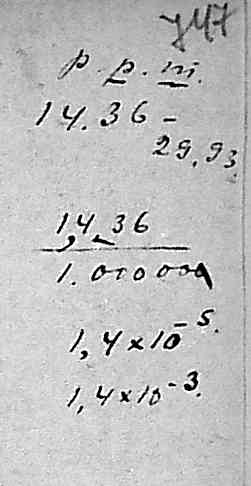 747
p.p.m.
14.36 -
29.93.
14.36
1.000000
1,4×10⁻⁵.
1,4×10⁻³.